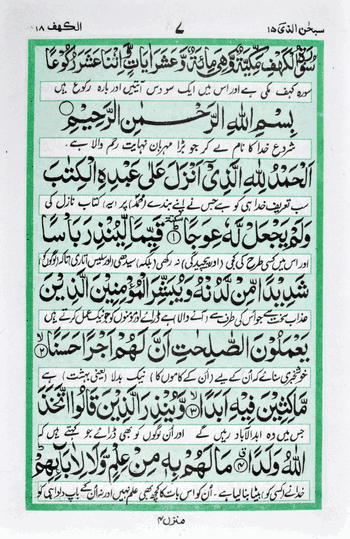 سبحٰن الذی ۱۵ ۷ الکهف ۱۸
سُوْرَةُ الْكَهْفِ مَكِّيَّةٌ وَّهِيَ مِائَةٌ وَّعَشْرُ اٰيَاتٍ وَّاثْنَا عَشَرَ رُكُوْعًا
سورہ کہف مکی ہے اور اس میں ایک سو دس آیتیں اور بارہ رکوع ہیں
بِسْمِ اللهِ الرَّحْمٰنِ الرَّحِيْمِ
شروع خدا کا نام لے کر جو بڑا مہربان نہایت رحم والا ہے۔
اَلْحَمْدُ لِلّٰهِ الَّذِيْٓ اَنْزَلَ عَلٰى عَبْدِهِ الْكِتٰبَ
سب تعریف خدا ہی کو ہے جس نے اپنے بندے (محمدؐ) پر (یہ) کتاب نازل کی
وَلَمْ يَجْعَلْ لَّهٗ عِوَجًا ۱ قَيِّمًا لِّيُنْذِرَ بَاْسًا
اور اس میں کسی طرح کی کجی (اور پیچیدگی) نہ رکھی (بلکہ) سیدھی (اور سلیس اتاری) تاکہ (لوگوں کو)
شَدِيْدًا مِّنْ لَّدُنْهُ وَيُبَشِّرَ الْمُؤْمِنِيْنَ الَّذِيْنَ
عذاب سخت سے جو اس کی طرف سے (آنے والا) ہے ڈرائے اور مومنوں کو جو نیک عمل کرتے ہیں
يَعْمَلُوْنَ الصّٰلِحٰتِ اَنَّ لَهُمْ اَجْرًا حَسَنًا ۲
خوشخبری سنائے کہ ان کے لیے (ان کے کاموں کا) نیک بدلا (یعنی بہشت) ہے
مَّاكِثِيْنَ فِيْهِ اَبَدًا ۳ وَّيُنْذِرَ الَّذِيْنَ قَالُوا اتَّخَذَ
جس میں وہ ابدالآباد رہیں گے اور ان لوگوں کو بھی ڈرائے جو کہتے ہیں کہ
اللهُ وَلَدًا ۴ مَا لَهُمْ بِهٖ مِنْ عِلْمٍ وَّلَا لِاٰبَآئِهِمْ
خدا نے (کسی کو) بیٹا بنا لیا ہے۔ ان کو اس بات کا کچھ بھی علم نہیں اور نہ ان کے باپ دادا ہی کو
منزل ۴